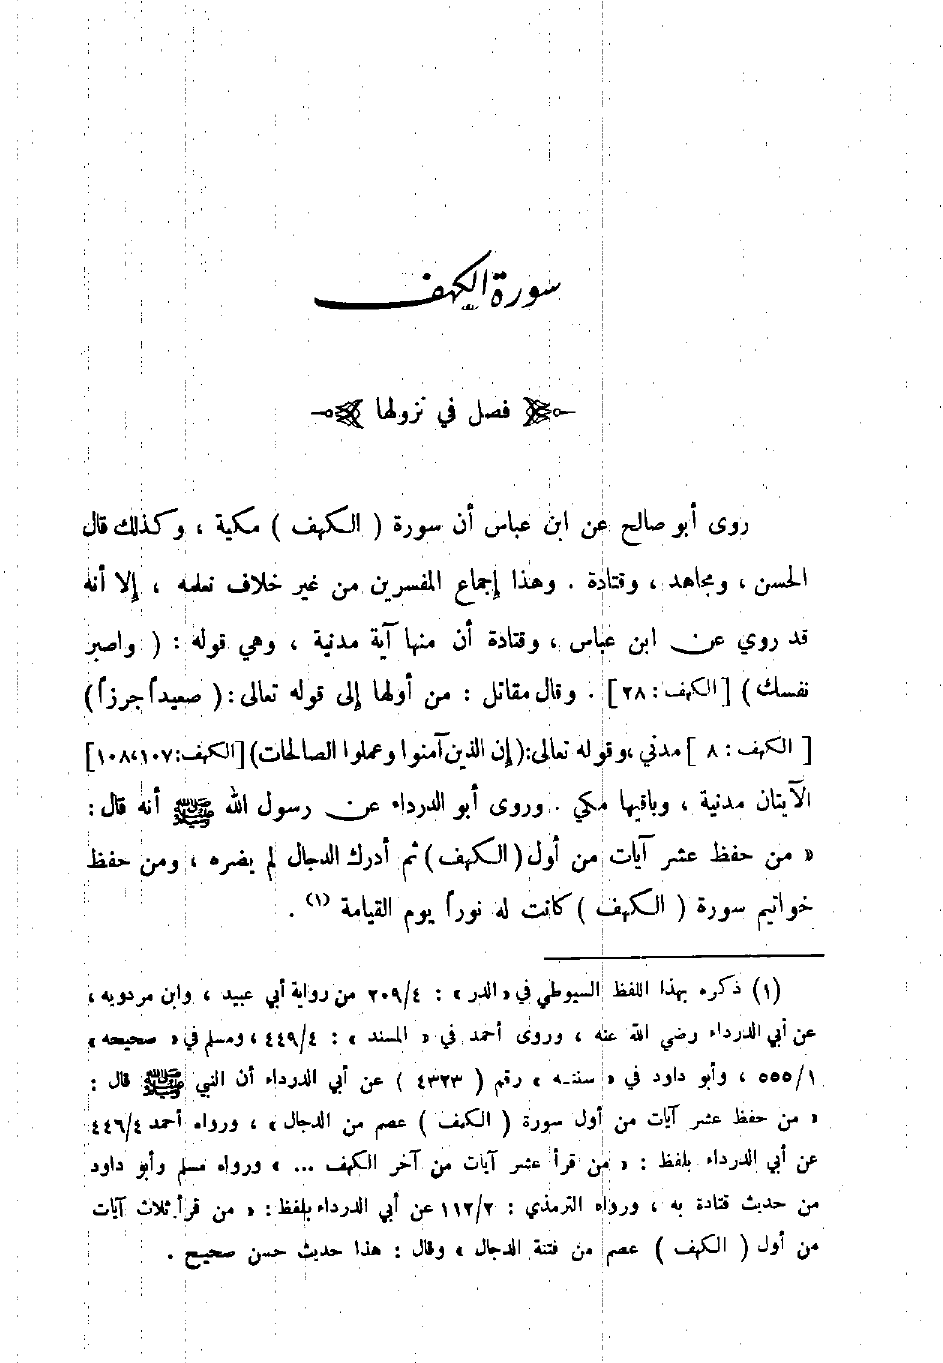 سورة الكهف
فصل في نزولها
روى أبو صالح عن ابن عباس أن سورة ( الكهف ) مكية ، وكذلك قال
الحسن ، ومجاهد ، وقتادة . وهذا إجماع المفسرين من غير خلاف نعلمه ، إلا أنه
قد روي عن ابن عباس ، وقتادة أن منها آية مدنية ، وهي قوله : ( واصبر
نفسك ) [ الكهف : ٢٨ ] . وقال مقاتل : من أولها إلى قوله تعالى : ( صعيداً جرزاً )
[ الكهف : ٨ ] مدني ، وقوله تعالى : ( إن الذين آمنوا وعملوا الصالحات ) [الكهف:١٠٧،١٠٨]
الآيتان مدنية ، وباقيها مكي . وروى أبو الدرداء عن رسول الله ﷺ أنه قال :
« من حفظ عشر آيات من أول ( الكهف ) ثم أدرك الدجال لم يضره ، ومن حفظ
خواتيم سورة ( الكهف ) كانت له نوراً يوم القيامة (١) .
(١) ذكره بهذا اللفظ السيوطي في « الدر » : ٢٠٩/٤ من رواية أبي عبيد ، وابن مردويه ،
عن أبي الدرداء رضي الله عنه ، وروى أحمد في « المسند » : ٤٤٩/٤ ، ومسلم في « صحيحه »
٥٥٥/١ ، وأبو داود في « سننه » رقم ( ٤٣٢٣ ) عن أبي الدرداء أن النبي ﷺ قال :
« من حفظ عشر آيات من أول سورة ( الكهف ) عصم من الدجال » ، ورواه أحمد ٤٤٦/٤
عن أبي الدرداء بلفظ : « من قرأ عشر آيات من آخر الكهف ... » ورواه مسلم وأبو داود
من حديث قتادة به ، ورواه الترمذي : ١١٢/٢ عن أبي الدرداء بلفظ : « من قرأ ثلاث آيات
من أول ( الكهف ) عصم من فتنة الدجال » وقال : هذا حديث حسن صحيح .